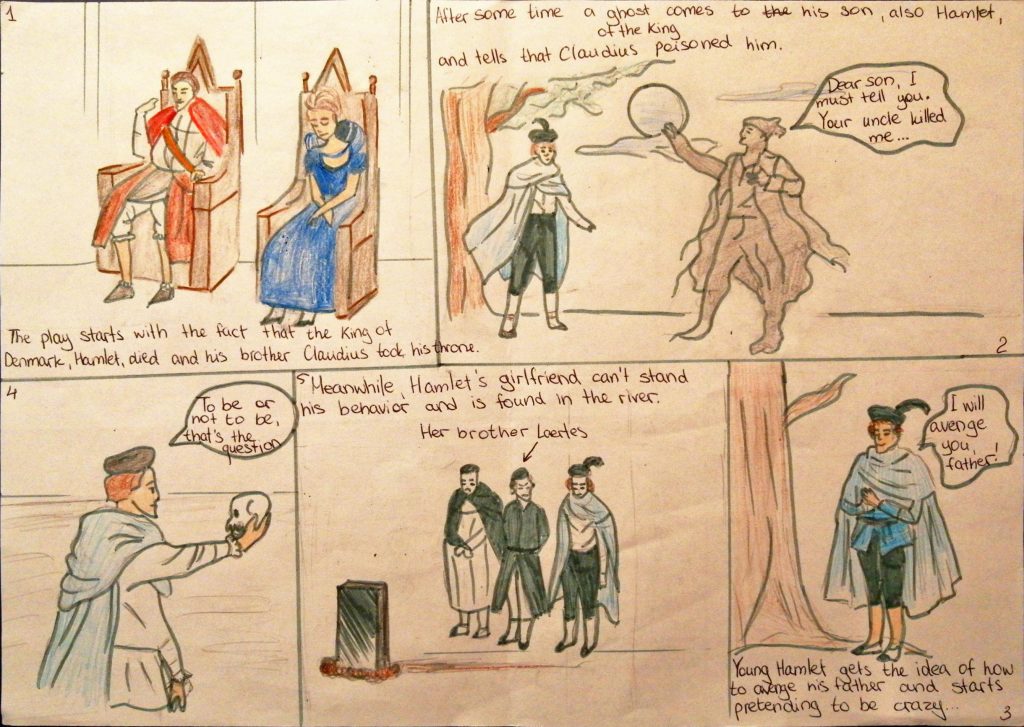 1
The play starts with the fact that the King of
Denmark, Hamlet, died and his brother Claudius took his throne.
After some time a ghost comes to the his son, also Hamlet,
of the King
and tells that Claudius poisoned him.
Dear son, I
must tell you.
Your uncle killed
me...
2
I will
avenge
you,
father!
Young Hamlet gets the idea of how
to avenge his father and starts
pretending to be crazy...
3
4
To be or
not to be,
that's the
question
5
Meanwhile, Hamlet's girlfriend can't stand
his behavior and is found in the river.
Her brother Laertes